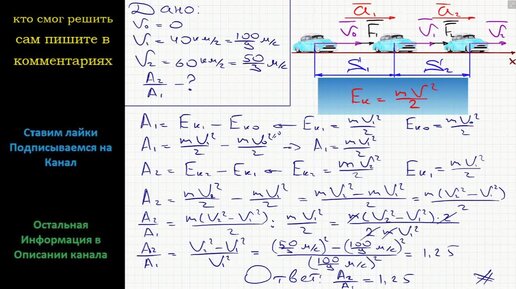 кто смог решить
сам пишите в
комментариях
Ставим лайки
Подписываемся на
Канал
Остальная
Информация в
Описании канала
Дано:
V₀ = 0
V₁ = 40 км/с = 100/9 м/с
V₂ = 60 км/с = 50/3 м/с
A₂/A₁ - ?
a₁ a₂
V₀ F₁ V₁ F₂ V₂
S₁ S₂ x
Eк = mV²/2
A₁ = Eк₁ - Eк₀ Eк₁ = mV₁²/2 Eк₀ = mV₀²/2
A₁ = mV₁²/2 - mV₀²/2 → A₁ = mV₁²/2
A₂ = Eк₂ - Eк₁ Eк₂ = mV₂²/2 Eк₁ = mV₁²/2
A₂ = mV₂²/2 - mV₁²/2 = (mV₂² - mV₁²)/2 = m(V₂² - V₁²)/2
A₂/A₁ = m(V₂² - V₁²)/2 : mV₁²/2 = m(V₂² - V₁²)·2/(2·mV₁²)
A₂/A₁ = (V₂² - V₁²)/V₁² = ((50/3 м/с)² - (100/9 м/с)²)/(100/9 м/с)² = 1,25
Ответ: A₂/A₁ = 1,25